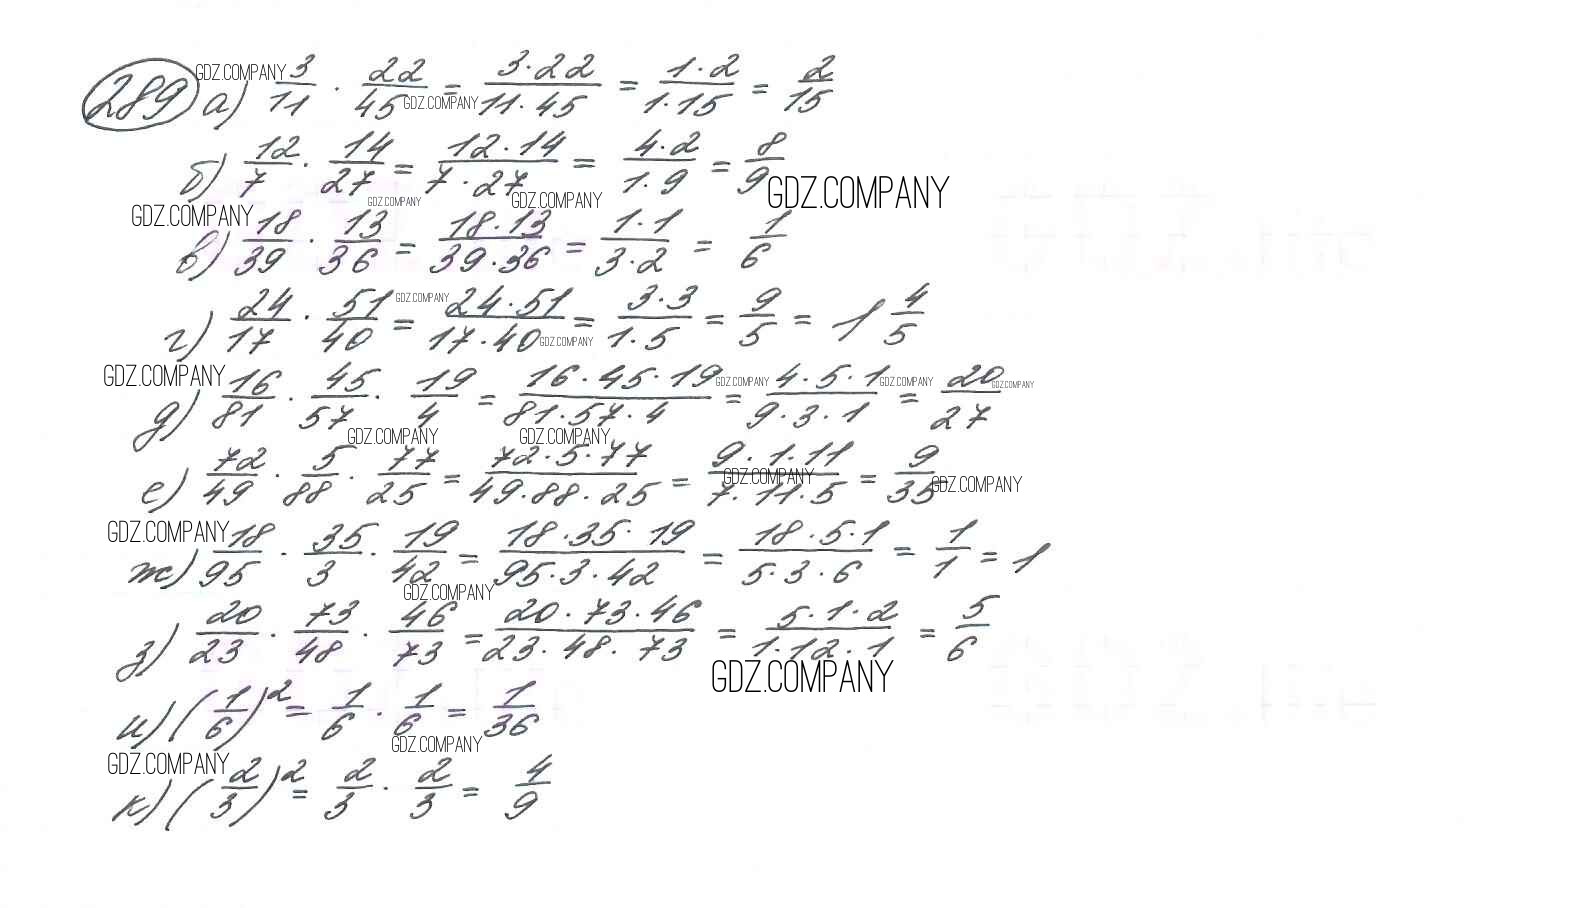 289 а) 3/11 · 22/45 = 3·22/11·45 = 1·2/1·15 = 2/15
б) 12/7 · 14/27 = 12·14/7·27 = 4·2/1·9 = 8/9
в) 18/39 · 13/36 = 18·13/39·36 = 1·1/3·2 = 1/6
г) 24/17 · 51/40 = 24·51/17·40 = 3·3/1·5 = 9/5 = 1 4/5
д) 16/81 · 45/57 · 19/4 = 16·45·19/81·57·4 = 4·5·1/9·3·1 = 20/27
е) 72/49 · 5/88 · 77/25 = 72·5·77/49·88·25 = 9·1·11/7·11·5 = 9/35
ж) 18/95 · 35/3 · 19/42 = 18·35·19/95·3·42 = 18·5·1/5·3·6 = 1/1 = 1
з) 20/23 · 73/48 · 46/73 = 20·73·46/23·48·73 = 5·1·2/1·12·1 = 5/6
и) (1/6)² = 1/6 · 1/6 = 1/36
к) (2/3)² = 2/3 · 2/3 = 4/9
GDZ.COMPANY